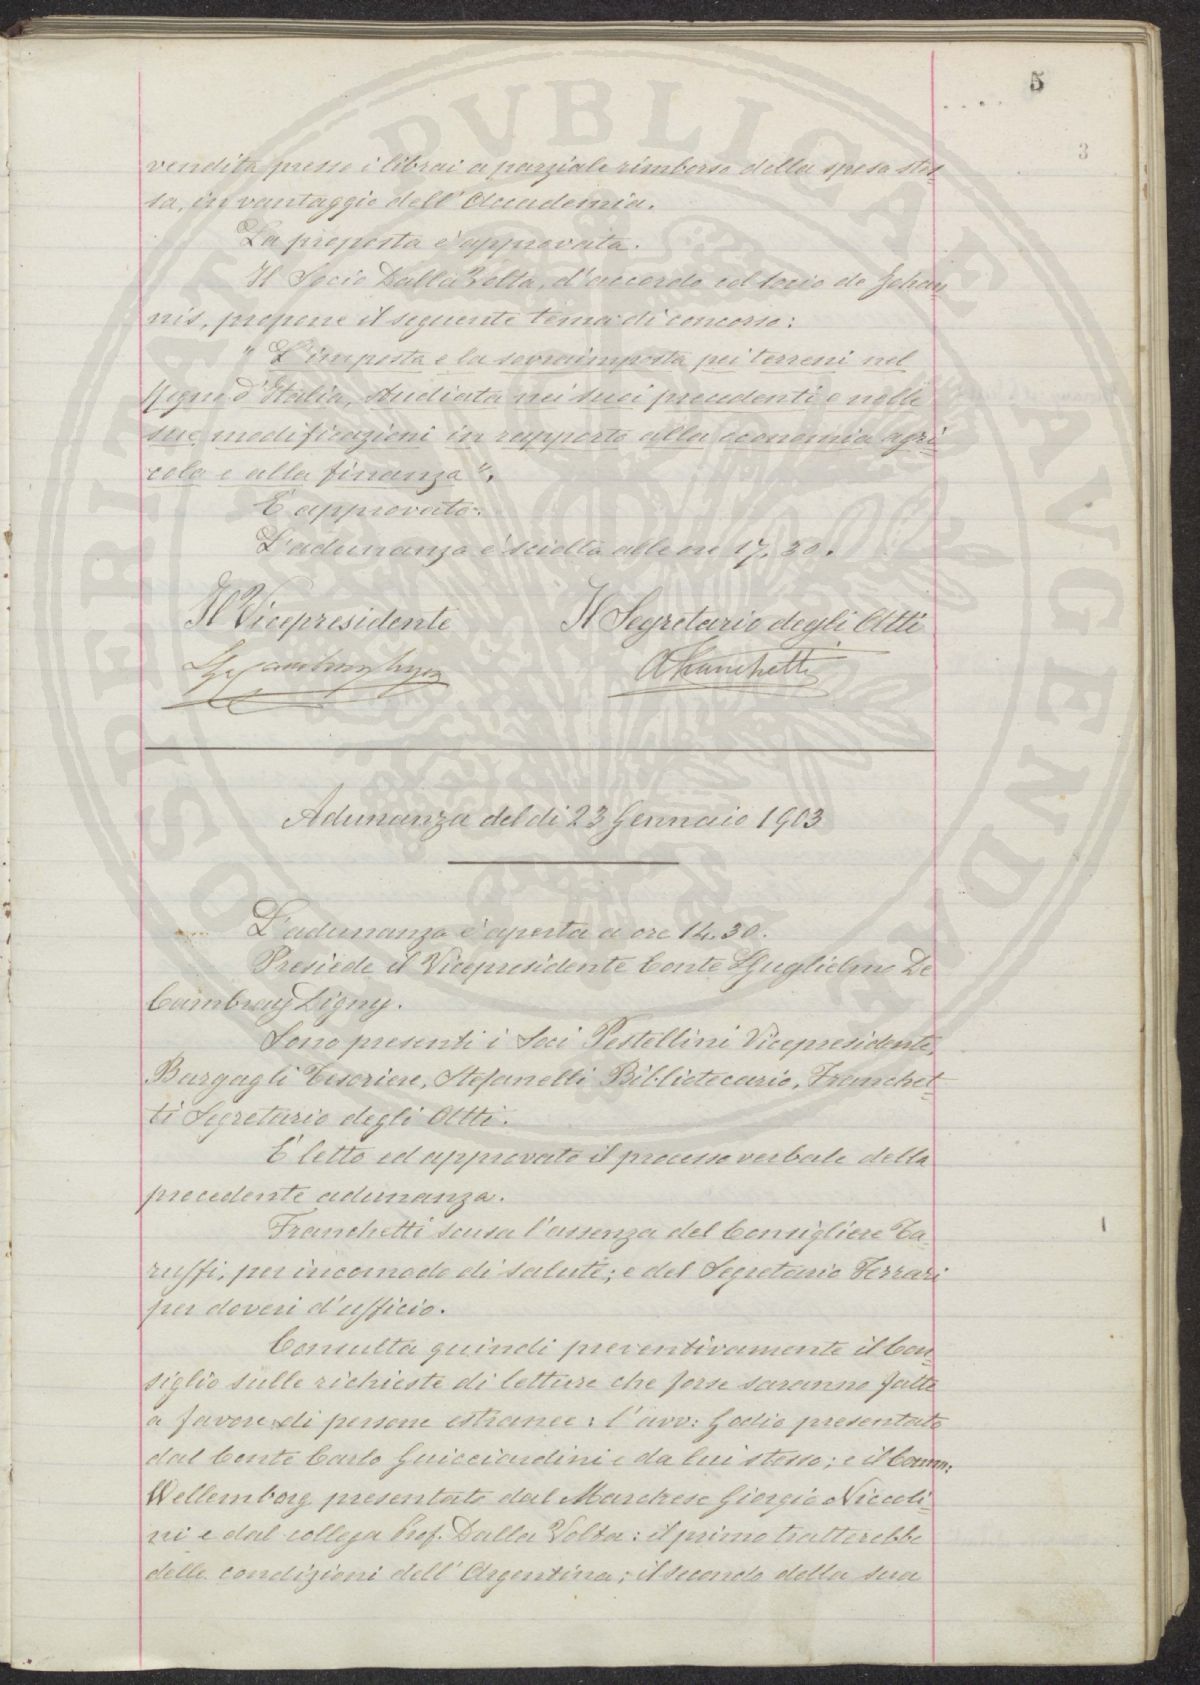 5
3
vendita presso i librai a parziale rimborso della spesa stes=
sa, in vantaggio dell'Accademia.
La proposta è approvata.
Il Socio Dalla Volta, d'accordo col socio de Johan=
nis, propone il seguente tema di concorso:
"L'imposta e la sovraimposta pei terreni nel
Regno d'Italia, studiata nei suoi precedenti e nelle
sue modificazioni in rapporto alla economia agri=
cola e alla finanza".
È approvato.
L'adunanza è sciolta alle ore 17.30.
Il Vicepresidente Il Segretario degli Atti
AFranchetti
Adunanza del dì 23 Gennaio 1903
L'adunanza è aperta a ore 14.30.
Presiede il Vicepresidente Conte Guglielmo De
Cambray Digny.
Sono presenti i Soci Pestellini Vicepresidente,
Bargagli Tesoriere, Stefanelli Bibliotecario, Franchet=
ti Segretario degli Atti.
È letto ed approvato il processo verbale della
precedente adunanza.
Franchetti scusa l'assenza del Consigliere Ta=
ruffi, per incomodo di salute; e del Segretario Ferrari
per doveri d'ufficio.
Consulta quindi preventivamente il Con=
siglio sulle richieste di letture che forse saranno fatte
a favore di persone estranee: l'avv: Godio presentato
dal Conte Carlo Guicciardini e da lui stesso; e il Comm:
Wellemborg presentato dal Marchese Giorgio Niccoli=
ni e dal collega Prof. Dalla Volta: il primo tratterebbe
delle condizioni dell'Argentina; il secondo della sua
PROSPERITATI PVBLICAE AVGENDAE